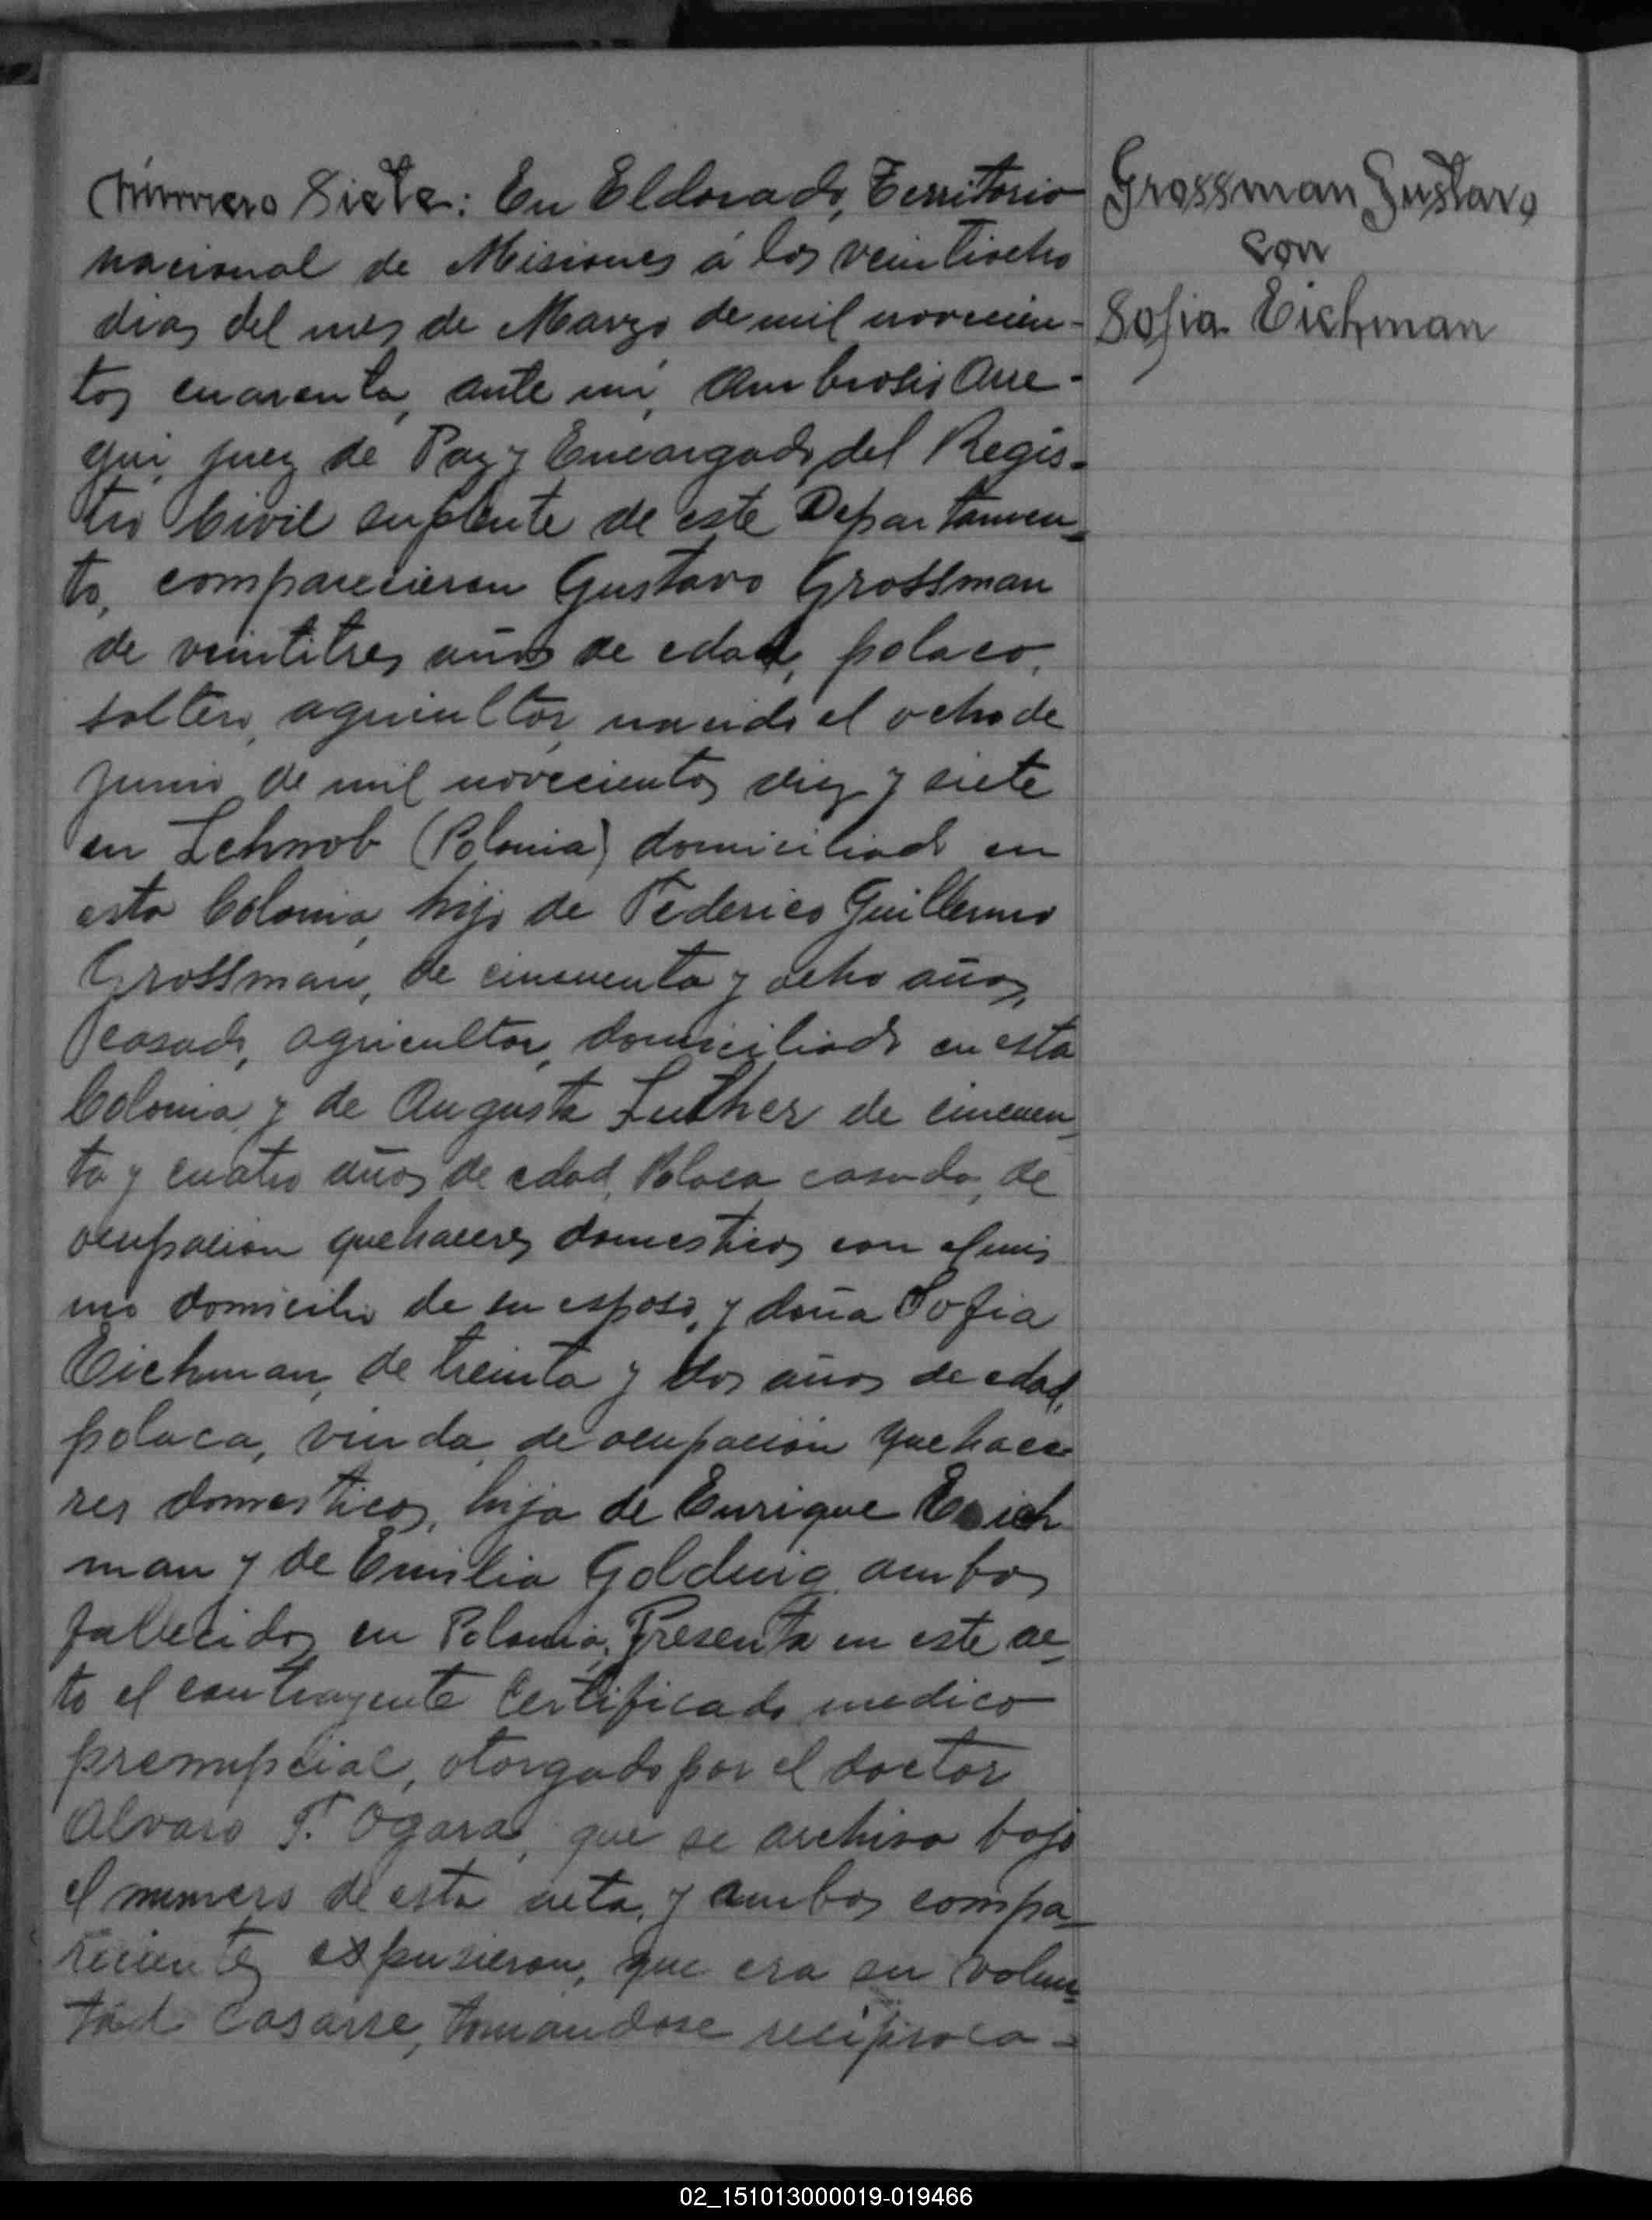 Número Siete: En Eldorado, Territorio
nacional de Misiones á los veintiocho
dias del mes de Marzo de mil novecien-
tos cuarenta, ante mi, Ambrosio Arre-
gui, juez de Paz y Encargado del Regis-
tro Civil suplente de este Departamen-
to, comparecieron Gustavo Grossman
de veintitres años de edad, polaco,
soltero, agricultor, nacido el ocho de
junio de mil novecientos diez y siete
en (Polonia) domiciliado en
esta Colonia, hijo de Federico Guillermo
Grossman, de cincuenta y ocho años,
casado, agricultor, domiciliado en esta
Colonia y de Augusta Luther de cincuen
ta y cuatro años de edad, Polaca casada, de
ocupacion quehaceres domesticos con el mis
mo domicilio de su esposo, y doña Sofia
Eichman, de treinta y dos años de edad,
polaca, viuda, de ocupacion quehace
res domesticos, hija de Enrique Eich
man y de Emilia ambos
fallecidos en Polonia, Presenta en este ac-
to el contrayente certificado medico
prenupcial, otorgado por el doctor
Alvaro T. Ogara, que se archiva bajo
el numero de esta acta, y ambos compa-
recientes expusieron, que era su volun-
tad casarse, tomandose reciproca-
Grossman Gustavo
con
Sofia Eichman
02_151013000019-019466